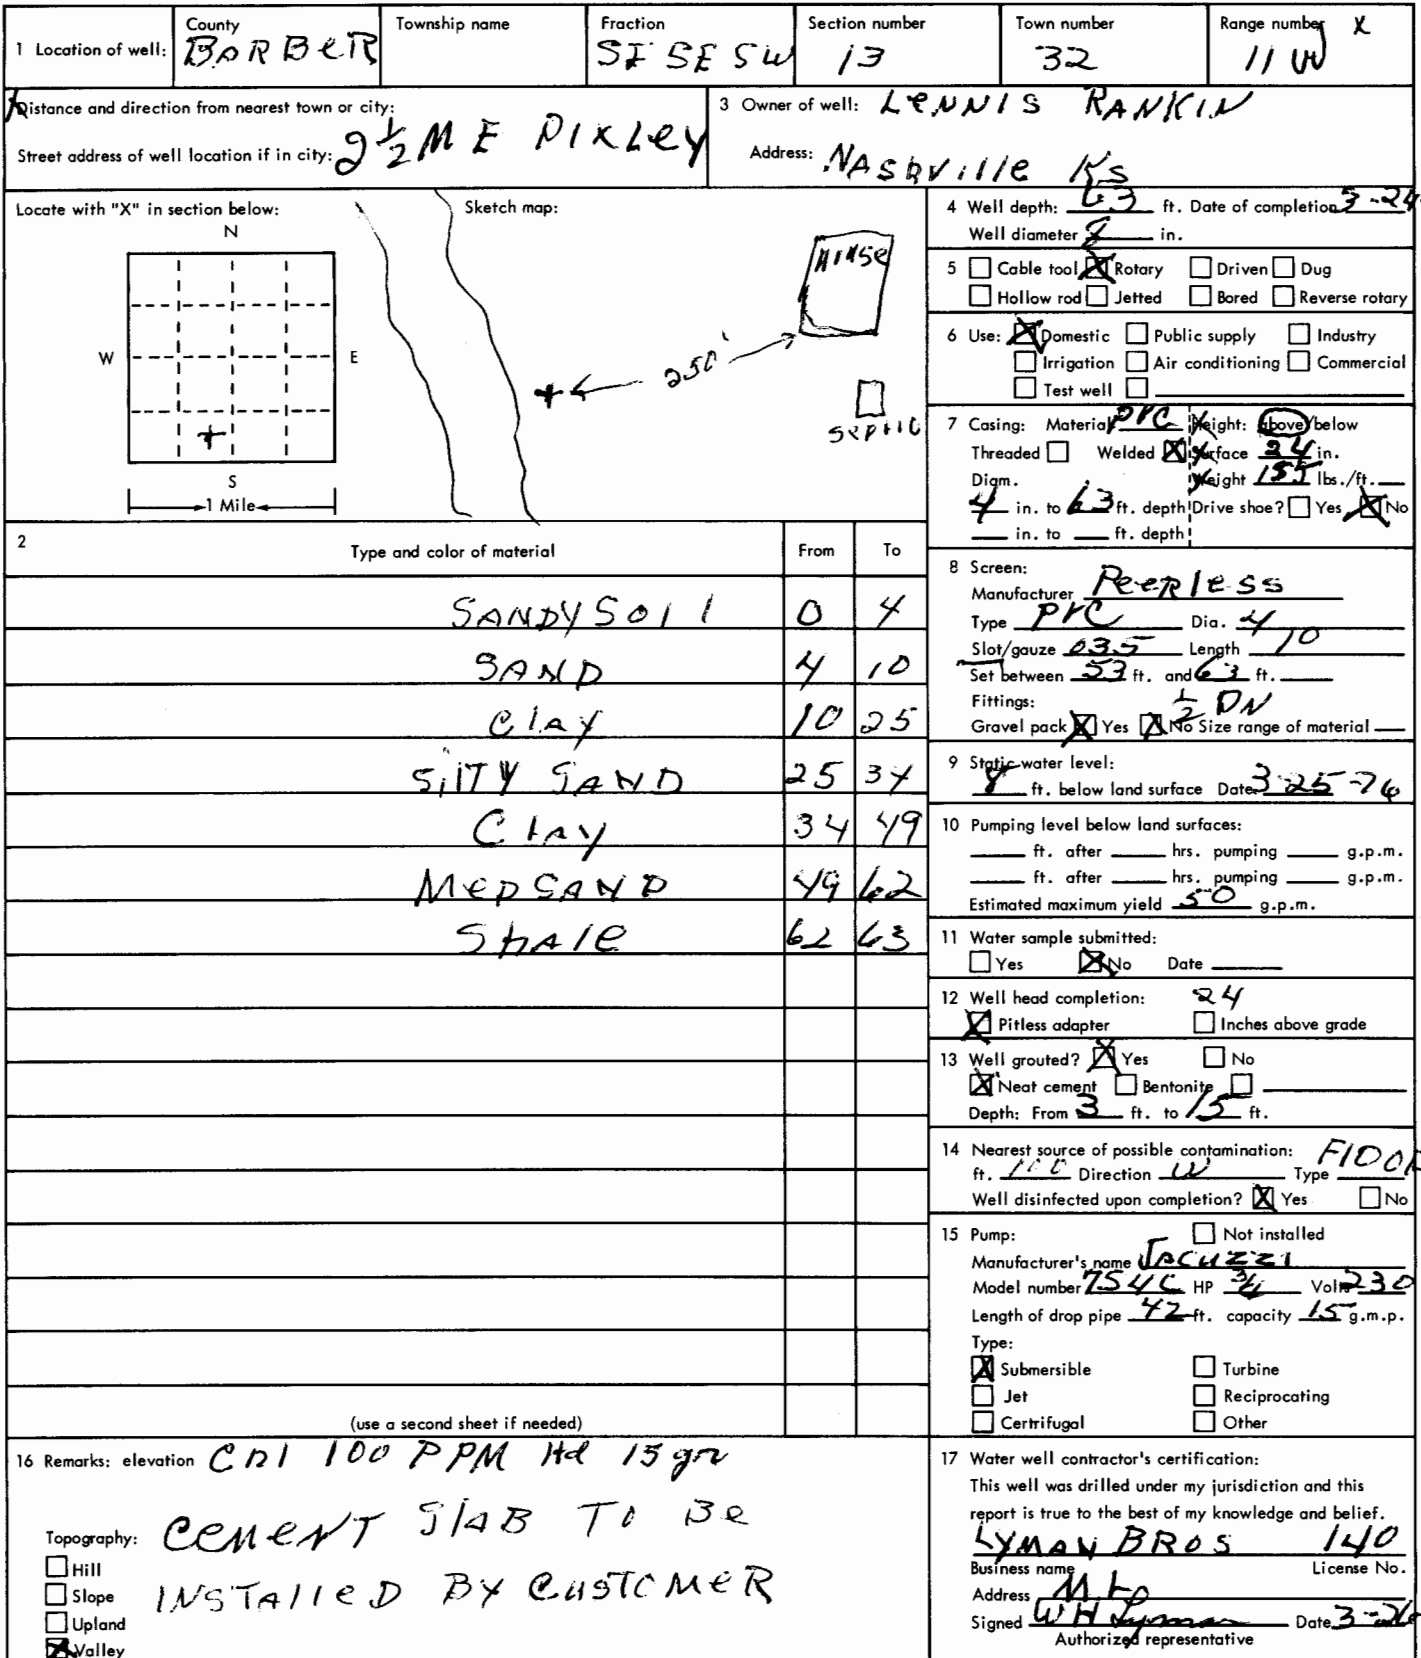 1 Location of well: County BARBER Township name Fraction SE SE SW Section number 13 Town number 32 Range number 11 W X
Distance and direction from nearest town or city:
Street address of well location if in city: 2 1/2 M E PIXLEY
3 Owner of well: LeNNIS RANKIN
Address: NAShville Ks
Locate with "X" in section below:
N
W E
S
1 Mile
Sketch map:
House
250'
Septic
4 Well depth: 63 ft. Date of completion 3-24
Well diameter 8 in.
5 Cable tool X Rotary Driven Dug
Hollow rod Jetted Bored Reverse rotary
6 Use: X Domestic Public supply Industry
Irrigation Air conditioning Commercial
Test well
7 Casing: Material PVC Height: above/below
Threaded Welded X Surface 24 in.
Diam. Weight 155 lbs./ft.
4 in. to 63 ft. depth Drive shoe? Yes X No
in. to ft. depth
2 Type and color of material From To
SANDY SOIl 0 4
SAND 4 10
ClAY 10 25
SilTY SAND 25 34
ClAy 34 49
MeD SAND 49 62
ShAle 62 63
(use a second sheet if needed)
8 Screen:
Manufacturer Peerless
Type PVC Dia. 4
Slot/gauze 035 Length 10
Set between 53 ft. and 63 ft.
Fittings: 1/2 DN
Gravel pack X Yes No Size range of material
9 Static water level:
8 ft. below land surface Date 3-25-76
10 Pumping level below land surfaces:
ft. after hrs. pumping g.p.m.
ft. after hrs. pumping g.p.m.
Estimated maximum yield 50 g.p.m.
11 Water sample submitted:
Yes X No Date
12 Well head completion: 24
X Pitless adapter Inches above grade
13 Well grouted? X Yes No
X Neat cement Bentonite
Depth: From 3 ft. to 15 ft.
14 Nearest source of possible contamination:
ft. 100 Direction W Type FlOOD
Well disinfected upon completion? X Yes No
15 Pump: Not installed
Manufacturer's name JACUZZI
Model number 754C HP 3/4 Volts 230
Length of drop pipe 42 ft. capacity 15 g.m.p.
Type:
X Submersible Turbine
Jet Reciprocating
Certrifugal Other
16 Remarks: elevation Chl 100 PPM Hd 15 gr
CemeNT SlAB TO Be
INSTAlleD BY CusTOMeR
Topography:
Hill
Slope
Upland
X Valley
17 Water well contractor's certification:
This well was drilled under my jurisdiction and this
report is true to the best of my knowledge and belief.
LYMAN BROS 140
Business name License No.
Address
Signed WH Lyman Date 3-26
Authorized representative